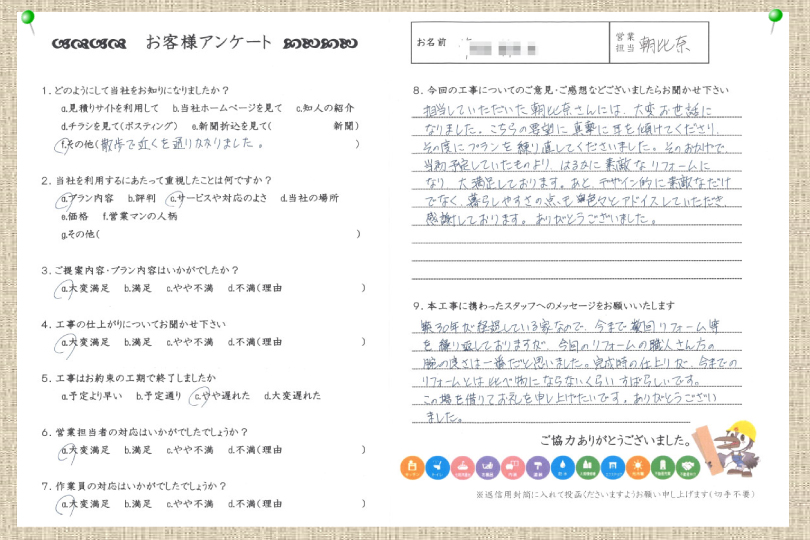 お客様アンケート
お名前
営業担当 朝比奈
1. どのようにして当社をお知りになりましたか?
a.見積りサイトを利用して b.当社ホームページを見て c.知人の紹介
d.チラシを見て(ポスティング) e.新聞折込を見て( 新聞)
f.その他(散歩で近くを通りかかりました。 )
2. 当社を利用するにあたって重視したことは何ですか?
a.プラン内容 b.評判 c.サービスや対応のよさ d.当社の場所
e.価格 f.営業マンの人柄
g.その他( )
3. ご提案内容・プラン内容はいかがでしたか?
a.大変満足 b.満足 c.やや不満 d.不満(理由 )
4. 工事の仕上がりについてお聞かせ下さい
a.大変満足 b.満足 c.やや不満 d.不満(理由 )
5. 工事はお約束の工期で終了しましたか
a.予定より早い b.予定通り c.やや遅れた d.大変遅れた
6. 営業担当者の対応はいかがでしたでしょうか?
a.大変満足 b.満足 c.やや不満 d.不満(理由 )
7. 作業員の対応はいかがでしたでしょうか?
a.大変満足 b.満足 c.やや不満 d.不満(理由 )
8. 今回の工事についてのご意見・ご感想などございましたらお聞かせ下さい
担当していただいた朝比奈さんには、大変お世話に
なりました。こちらの要望に真摯に耳を傾けてくださり、
その度にプランを練り直してくださいました。そのおかげで
当初予定していたものより、はるかに素敵なリフォームに
なり、大満足しております。あと、デザイン的に素敵なだけ
でなく、暮らしやすさの点も色々とアドバイスしていただき
感謝しております。ありがとうございました。
9. 本工事に携わったスタッフへのメッセージをお願いいたします
築30年が経過している家なので、今まで数回リフォーム等
を繰り返しておりますが、今回のリフォームの職人さん方の
腕の良さは一番だと思いました。完成時の仕上りが、今までの
リフォームとは比べ物にならないくらいすばらしいです。
この場を借りてお礼を申し上げたいです。ありがとうござい
ました。
ご協力ありがとうございました。
※返信用封筒に入れて投函くださいますようお願い申し上げます(切手不要)